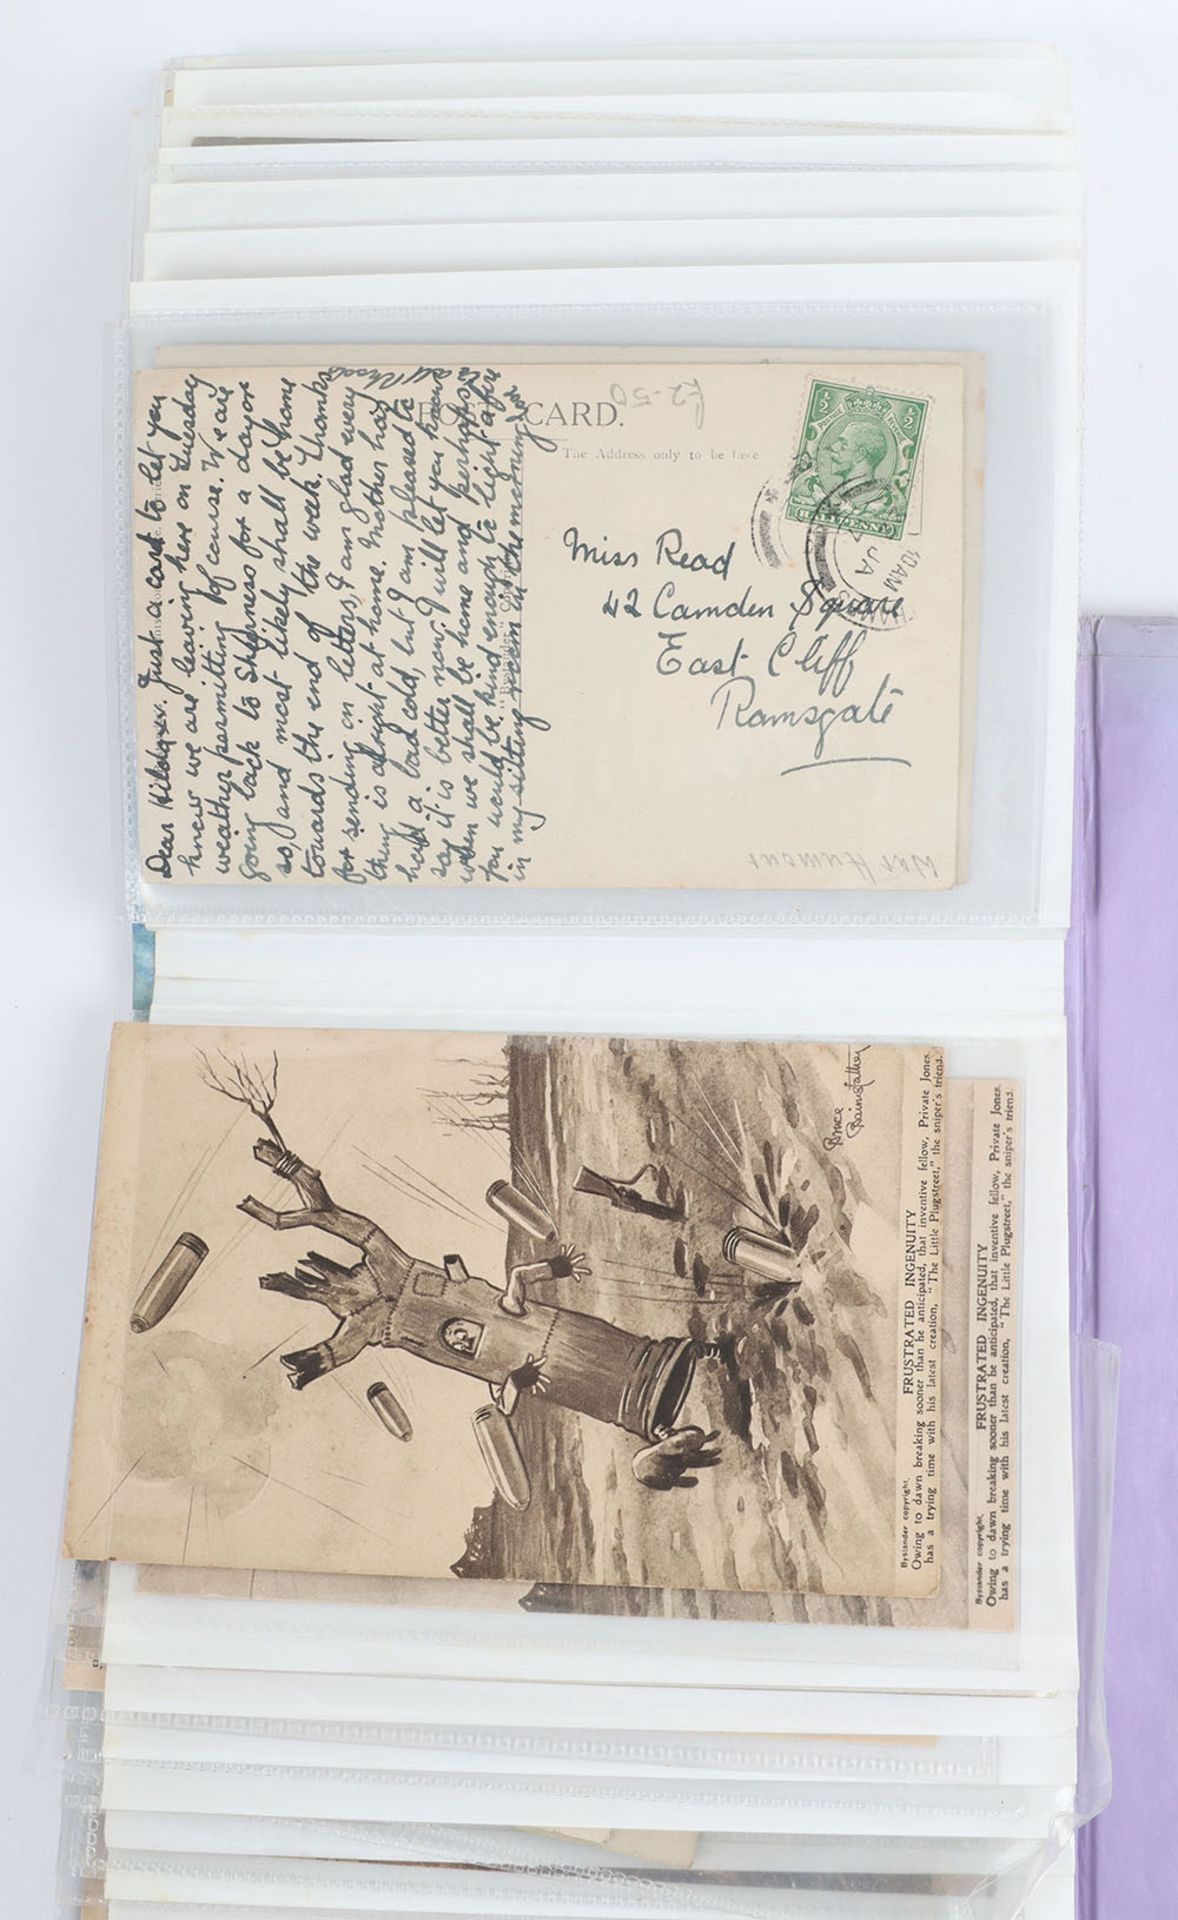 POST CARD.
The Address only to be here.
£2-50
Dear Hilda xx. Just a card to let you
know we are leaving here on Tuesday
weather permitting of course. We are
going back to Sheerness for a day or
so, and most likely shall be home
towards the end of the week. Thanks
for sending in letters, I am glad every
thing is alright at home. Mother has
had a bad cold, but I am pleased to
say it is better now. I will let you know
when we shall be home and perhaps
you would be kind enough to light a fire
in my sitting room in the morning
HALFPENNY
10 AM
JA
Miss Read
42 Camden Square
East Cliff
Ramsgate
War Humour
Bruce
Bairnsfather
Bystander copyright.
FRUSTRATED INGENUITY
Owing to dawn breaking sooner than he anticipated, that inventive fellow, Private Jones,
has a trying time with his latest creation, "The Little Plugstreet," the sniper's friend.
Bystander copyright.
FRUSTRATED INGENUITY
Owing to dawn breaking sooner than he anticipated, that inventive fellow, Private Jones,
has a trying time with his latest creation, "The Little Plugstreet," the sniper's friend.